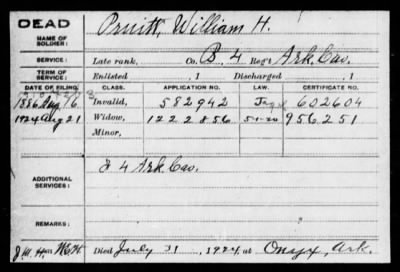 DEAD
NAME OF SOLDIER: Pruitt, William H.
SERVICE: Late rank, Co. B, 4 Reg't Ark. Cav.
TERM OF SERVICE: Enlisted , 1 Discharged , 1
DATE OF FILING. CLASS. APPLICATION NO. LAW. CERTIFICATE NO.
1886 Aug 16 Invalid, 582942 602604
1924 Aug 21 Widow, 1222856 5-1-20 956251
Minor,
ADDITIONAL SERVICES: 4 Ark. Cav.
REMARKS:
Died July 31, 1924, at Onyx, Ark.